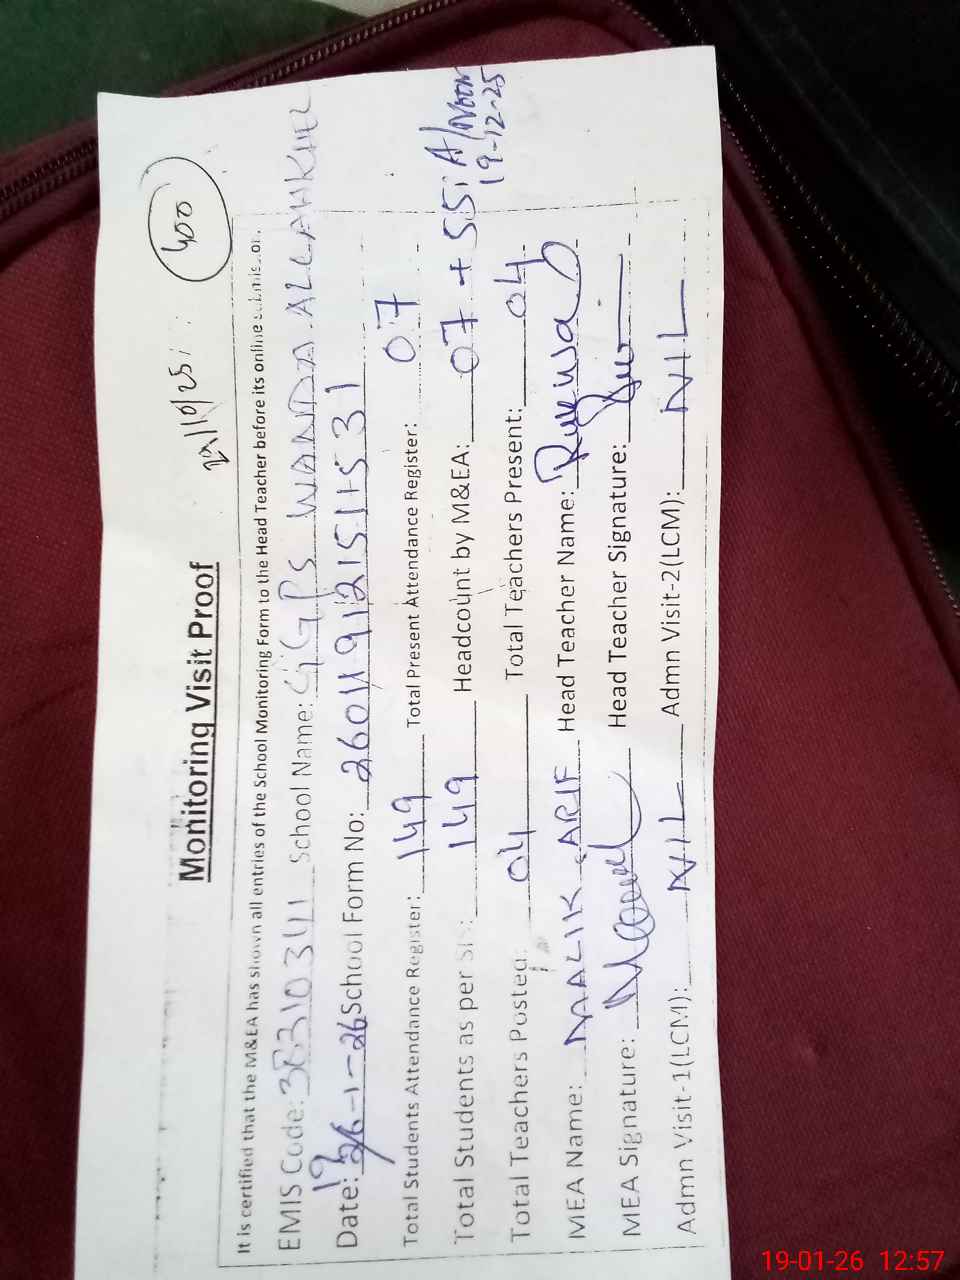 400
Monitoring Visit Proof
It is certified that the M&EA has shown all entries of the School Monitoring Form to the Head Teacher before its online submission.
EMIS Code: School Name: GGPS WANDA ALLAHKHEL
Date: 19 26-1-26 School Form No: 26011912151531
Total Students Attendance Register: 149 Total Present Attendance Register: 07
Total Students as per SIS: 149 Headcount by M&EA: 07 +
19-12-25
Total Teachers Posted: 04 Total Teachers Present: 04
MEA Name: MALIK ARIF Head Teacher Name:
MEA Signature: Head Teacher Signature:
Admn Visit-1(LCM): NIL Admn Visit-2(LCM): NIL
19-01-26 12:57